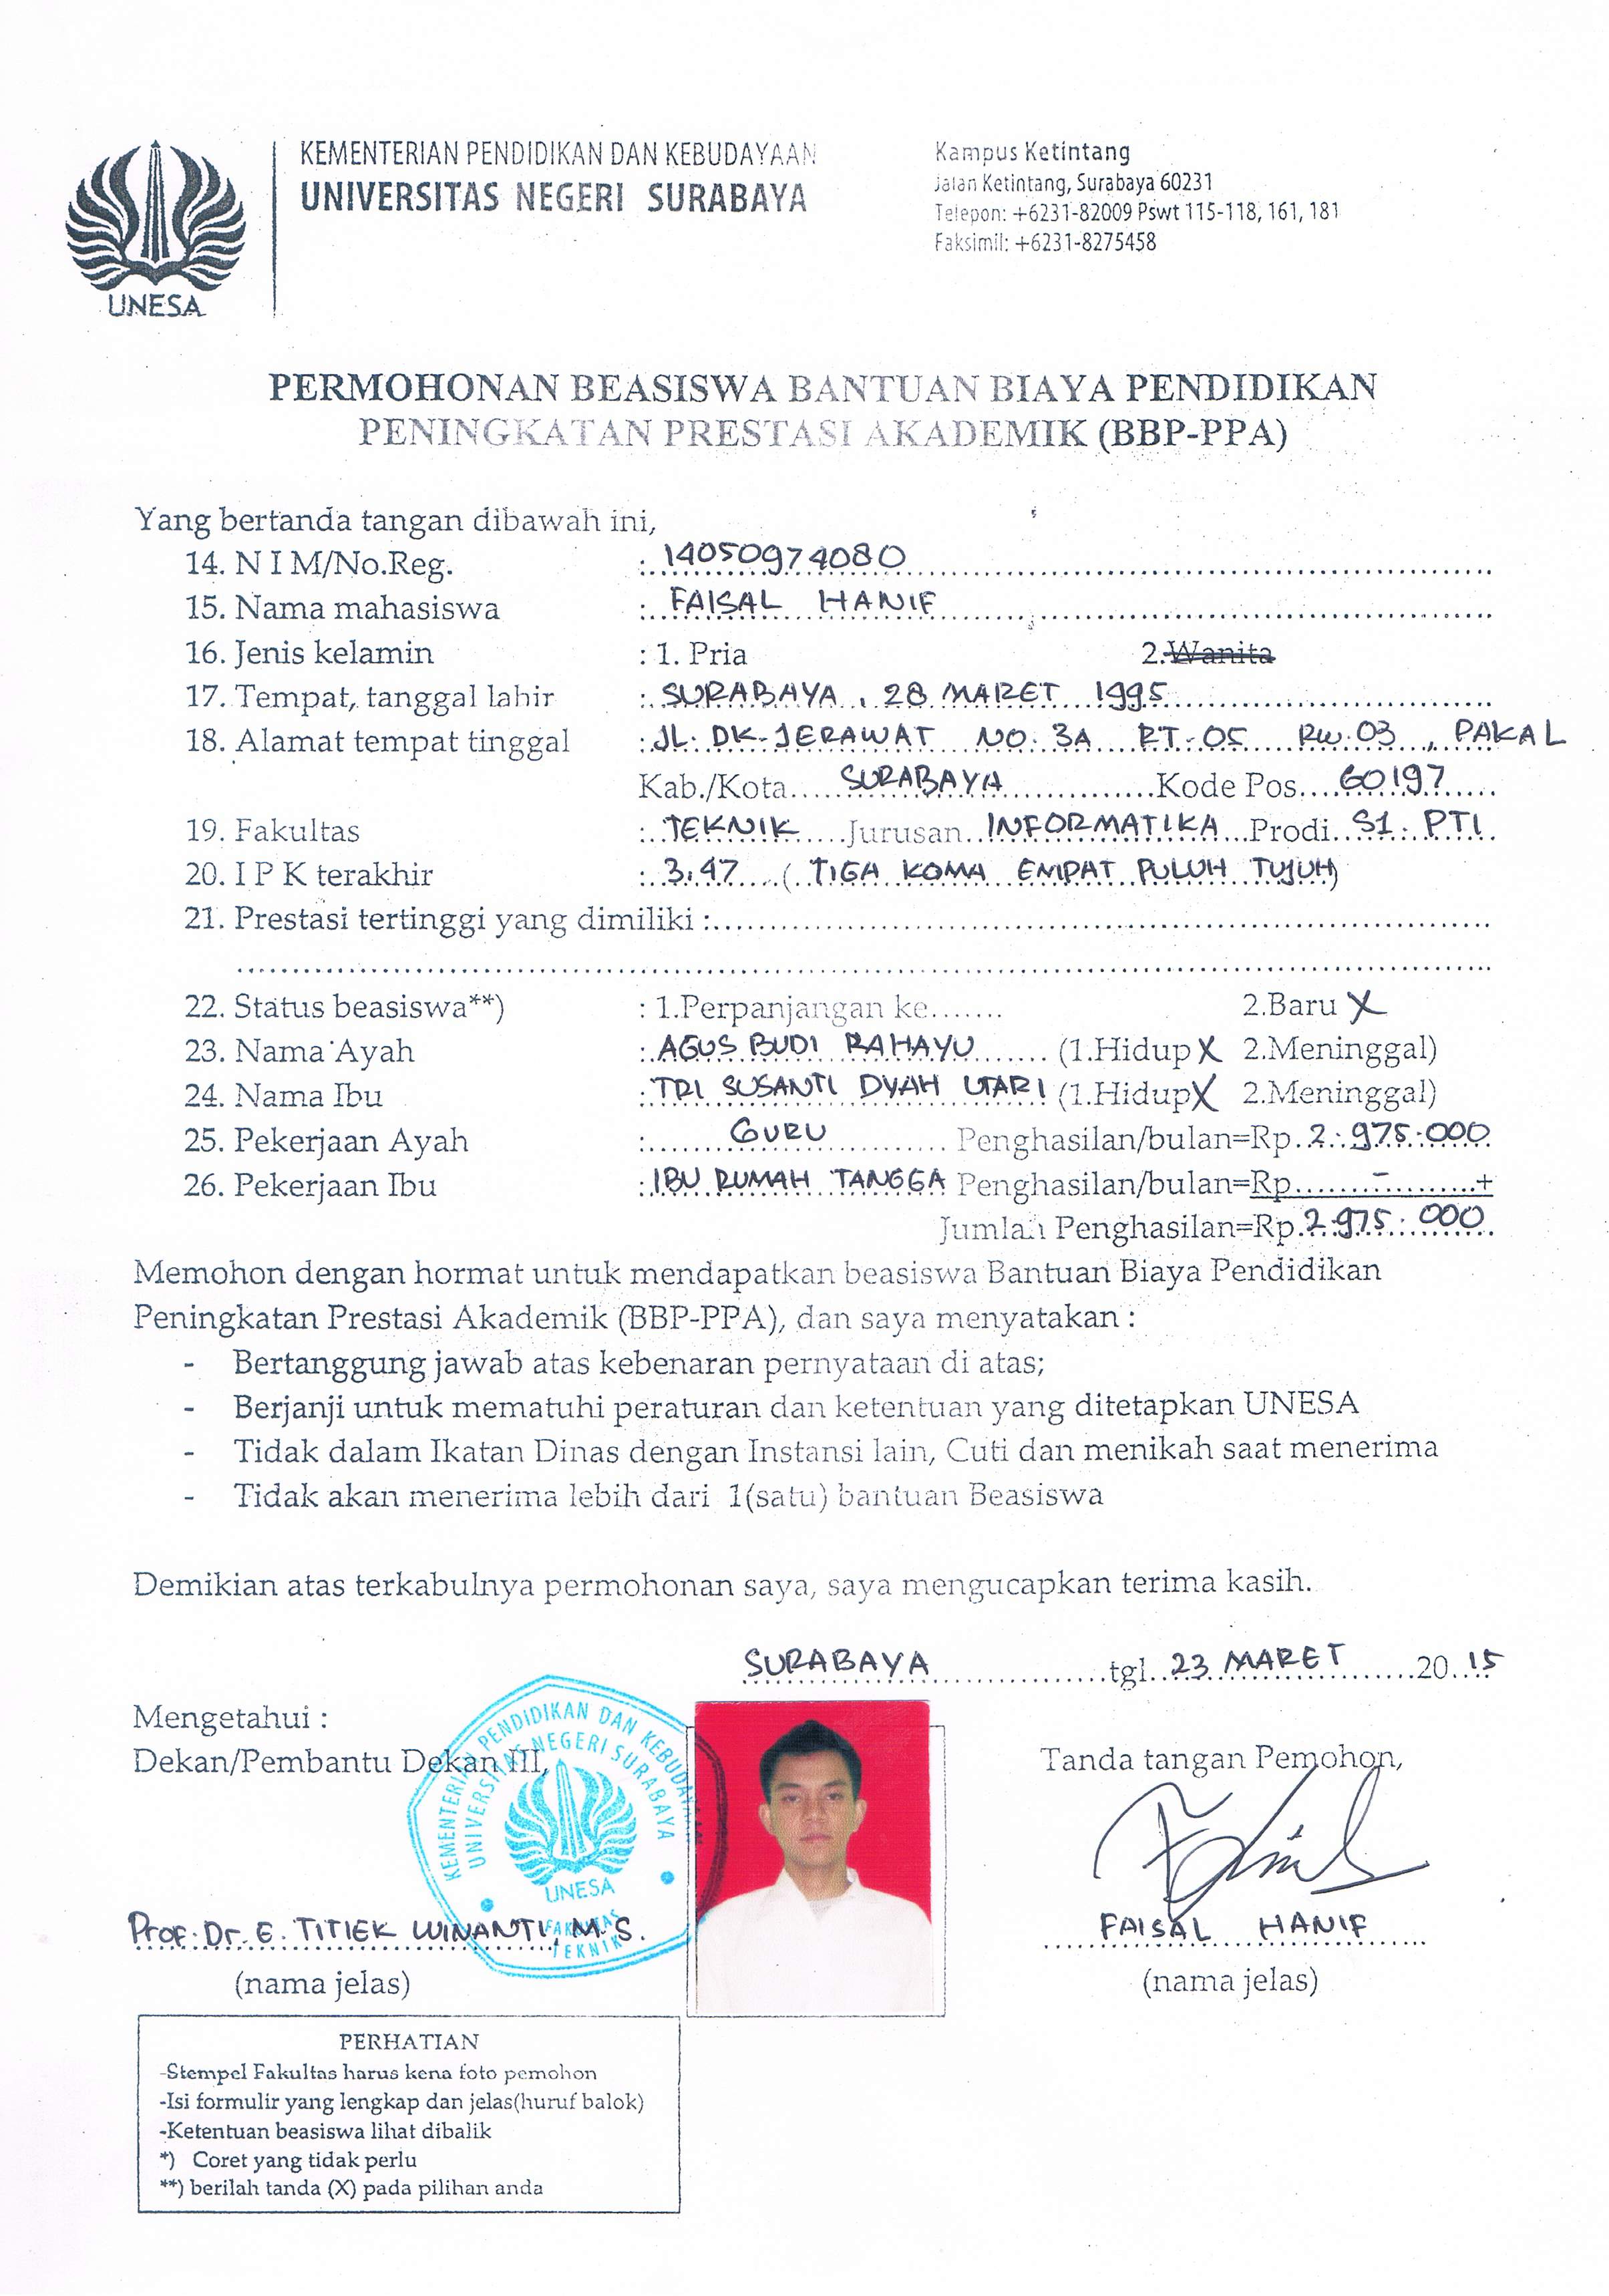 KEMENTERIAN PENDIDIKAN DAN KEBUDAYAAN
UNIVERSITAS NEGERI SURABAYA
UNESA
Kampus Ketintang
Jalan Ketintang, Surabaya 60231
Telepon: +6231-82009 Pswt 115-118, 161, 181
Faksimil: +6231-8275458
PERMOHONAN BEASISWA BANTUAN BIAYA PENDIDIKAN
PENINGKATAN PRESTASI AKADEMIK (BBP-PPA)
Yang bertanda tangan dibawah ini,
14. N I M/No.Reg. : 14050974080
15. Nama mahasiswa : FAISAL HANIF
16. Jenis kelamin : 1. Pria 2. Wanita
17. Tempat, tanggal lahir : SURABAYA, 28 MARET 1995
18. Alamat tempat tinggal : JL. DK. JERAWAT NO. 3A RT. 05 RW. 03, PAKAL
Kab./Kota SURABAYA Kode Pos 60197
19. Fakultas : TEKNIK Jurusan INFORMATIKA Prodi S1. PTI
20. I P K terakhir : 3.47 (TIGA KOMA EMPAT PULUH TUJUH)
21. Prestasi tertinggi yang dimiliki :
22. Status beasiswa**) : 1.Perpanjangan ke....... 2.Baru X
23. Nama Ayah : AGUS BUDI RAHAYU (1.Hidup X 2.Meninggal)
24. Nama Ibu : TRI SUSANTI DYAH UTARI (1.Hidup X 2.Meninggal)
25. Pekerjaan Ayah : GURU Penghasilan/bulan=Rp. 2.975.000
26. Pekerjaan Ibu : IBU RUMAH TANGGA Penghasilan/bulan=Rp - +
Jumlah Penghasilan=Rp. 2.975.000
Memohon dengan hormat untuk mendapatkan beasiswa Bantuan Biaya Pendidikan
Peningkatan Prestasi Akademik (BBP-PPA), dan saya menyatakan :
- Bertanggung jawab atas kebenaran pernyataan di atas;
- Berjanji untuk mematuhi peraturan dan ketentuan yang ditetapkan UNESA
- Tidak dalam Ikatan Dinas dengan Instansi lain, Cuti dan menikah saat menerima
- Tidak akan menerima lebih dari 1(satu) bantuan Beasiswa
Demikian atas terkabulnya permohonan saya, saya mengucapkan terima kasih.
SURABAYA tgl. 23 MARET 2015
Mengetahui :
Dekan/Pembantu Dekan III,
Tanda tangan Pemohon,
KEMENTERIAN PENDIDIKAN DAN KEBUDAYAAN
UNIVERSITAS NEGERI SURABAYA
UNESA
FAKULTAS
TEKNIK
Prof. Dr. E. TITIEK WINANTI, M.S.
(nama jelas)
FAISAL HANIF
(nama jelas)
PERHATIAN
-Stempel Fakultas harus kena foto pemohon
-Isi formulir yang lengkap dan jelas(huruf balok)
-Ketentuan beasiswa lihat dibalik
*) Coret yang tidak perlu
**) berilah tanda (X) pada pilihan anda